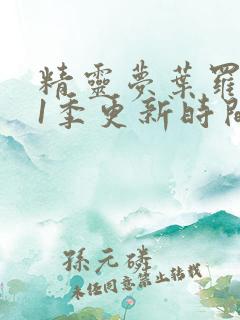 精靈夢葉羅
1季更新時間
孫元磷
未經同意禁止轉載